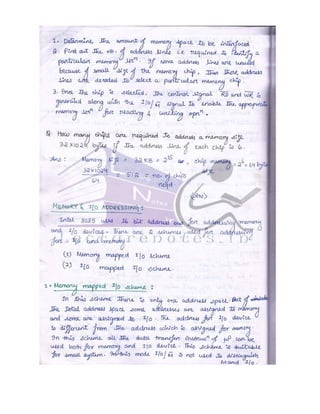 1. Determine the amount of memory space to be interfaced
2. Find out the no. of address lines i.e required to identify a
particular memory locn. If some address lines are unused
because of small size of the memory chip. Then these address
lines are decoded to select a particular memory chip
3. Once the chip is selected. The control signal RD and WR is
generated along with the I/O/M signal to enable the appropriate
memory locn for reading & writing opn.
Q. How many chips are required to address a memory size
32X1024 bytes if the address line of each chip is 6.
Ans : Memory size = 32 KB = 2^15 , chip memory = 2^6 = 64 bytes
32X1024 / 64 = 512 = no of chips
reqd
(Ans)
MEMORY & I/O ADDRESSING :
Intel 8085 uses 16 bit address bus for addressing memory
and I/O devices. There are 2 schemes used for addressing
for I/O and memory
(1) Memory mapped I/O scheme
(2) I/O mapped I/O scheme
1. Memory mapped I/O scheme :
In this scheme there is only one address space. Out of
the total address space some addresses are assigned to memory
and some are assigned to I/O. The address for I/O device
is different from the address which is assigned for memory.
In this scheme all the data transfer instrns of µP can be
used both for memory and I/O device. This scheme is suitable
for small system. In this mode I/O/M is not used to distinguish
M and I/O.